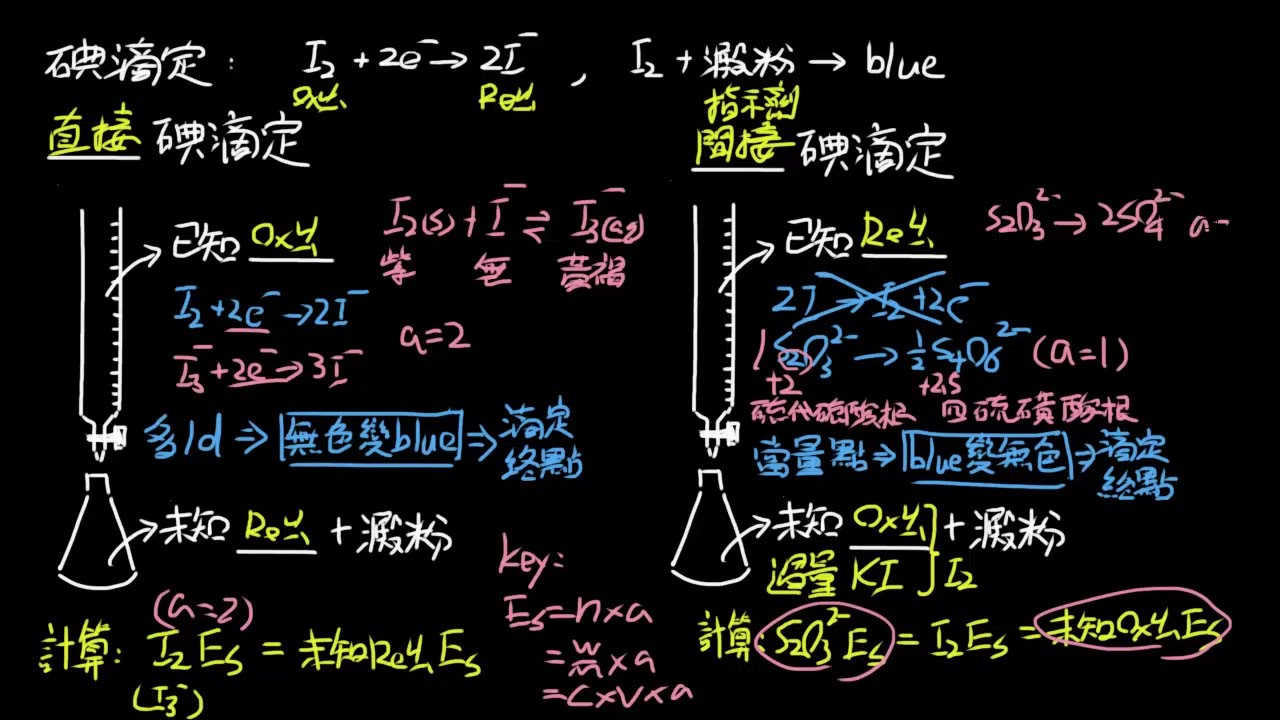 碘滴定: I₂ + 2e⁻ → 2I⁻ , I₂ + 澱粉 → blue
Ox劑 Re劑 指示劑
直接 碘滴定
已知 Ox劑
I₂(s) + I⁻ ⇌ I₃⁻(aq)
紫 無 黃褐
I₂ + 2e⁻ → 2I⁻
I₃⁻ + 2e⁻ → 3I⁻
a=2
多1d ⇒ 無色變blue ⇒ 滴定終點
未知 Re劑 + 澱粉
(a=2)
計算: I₂ Es = 未知Re劑 Es
(I₃⁻)
key:
Es = n×a
= w/m × a
= C×V×a
間接 碘滴定
已知 Re劑
S₂O₃²⁻ → 2SO₄²⁻ a=
2I⁻ → I₂ + 2e⁻
1 S₂O₃²⁻ → ½ S₄O₆²⁻ (a=1)
+2 +2.5
硫代硫酸根 四硫磺酸根
當量點 ⇒ blue變無色 ⇒ 滴定終點
未知 Ox劑 + 澱粉
過量 KI } I₂
計算: S₂O₃²⁻ Es = I₂ Es = 未知Ox劑 Es